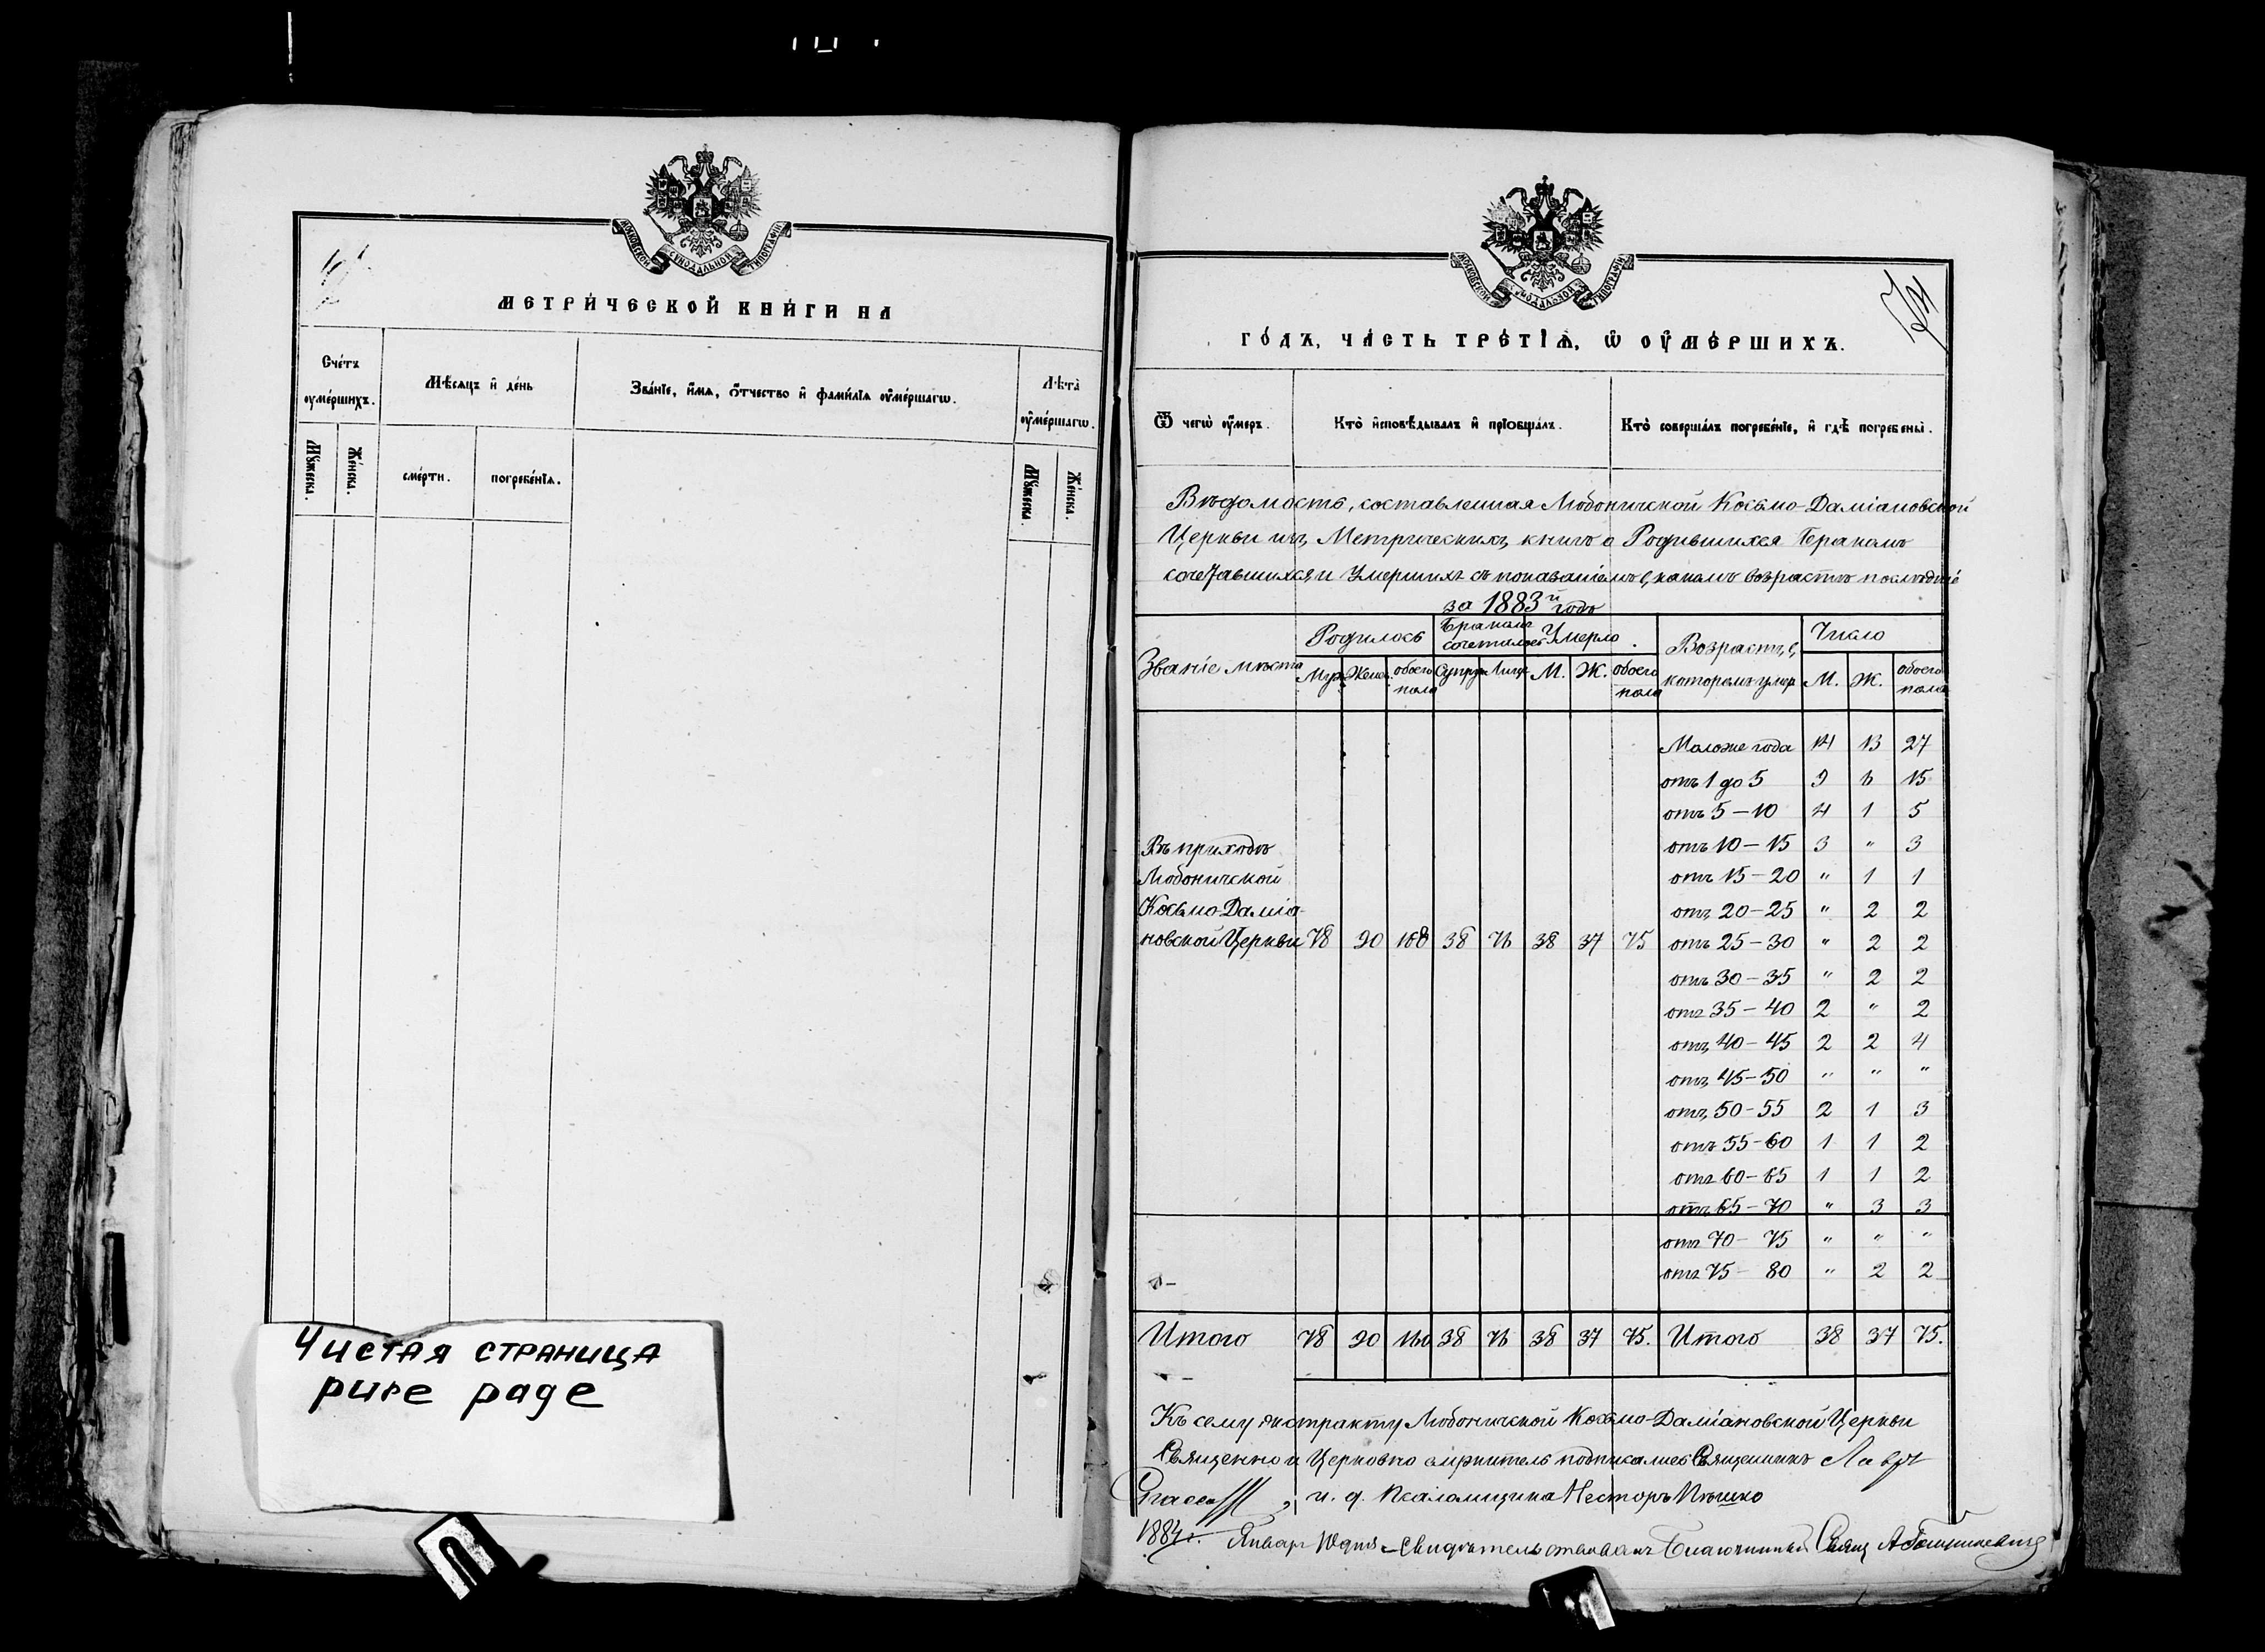 МОСКОВСКОЙ СѴНОДАЛЬНОЙ ТИПОГРАФІИ
МЕТРИ́ЧЕСКОЙ КНИ́ГИ НА
Сче́тъ ᲂумершихъ.
Мѣ́сяцъ и҆ де́нь
Зва́нїе, и҆́мѧ, ѻ҆́тчество и҆ фами́лїѧ ᲂу҆ме́ршагѡ.
Лѣ́та ᲂу҆ме́ршагѡ.
Мꙋ́жеска.
Же́нска.
сме́рти.
погребе́нїѧ.
Мꙋ́жеска.
Же́нска.
Чистая страница
pure page
МОСКОВСКОЙ СѴНОДАЛЬНОЙ ТИПОГРАФІИ
ГО́ДЪ, ЧА́СТЬ ТРЕ́ТІѦ, Ѡ҆ ОУ҆МЕ́РШИХЪ.
Ѿ чегѡ̀ ᲂу҆́меръ.
Кто̀ и҆сповѣ́дывалъ и҆ прїѡбща́лъ.
Кто̀ соверша́лъ погребе́нїе, и҆ гдѣ̀ погребены̀.
Вѣдомость, составленная Любоничской Косьмо-Даміановской
Церкви изъ Метрическихъ книгъ о Родившихся Бракомъ
сочетавшихся и Умершихъ съ показаніемъ въ какомъ возрастѣ послѣдніе
за 1883й годъ
Званіе мѣста
Родилось
Бракомъ сочеталось
Умерло
Возрастъ, въ которомъ умер
Число
Муж. Женс. обоего пола Супруж. Лицъ М. Ж. обоего пола М. Ж. обоего пола
Моложе года 14 13 27
отъ 1 до 5 9 6 15
отъ 5 – 10 4 1 5
Въ приходѣ отъ 10 – 15 3 " 3
Любоничской отъ 15 – 20 " 1 1
Косьмо-Даміа- отъ 20 – 25 " 2 2
новской Церкви 78 90 168 38 76 38 37 75 отъ 25 – 30 " 2 2
отъ 30 – 35 " 2 2
отъ 35 – 40 2 " 2
отъ 40 – 45 2 2 4
отъ 45 – 50 " " "
отъ 50 – 55 2 1 3
отъ 55 – 60 1 1 2
отъ 60 – 65 1 1 2
отъ 65 – 70 " 3 3
отъ 70 – 75 " " "
отъ 75 – 80 " 2 2
Итого 78 90 38 76 38 37 75. Итого 38 37 75.
Къ сему экстракту Любоничской Косьмо-Даміановской Церкви
Священно и Церковно служители подписались Священникъ Лавръ
, и. д. Псаломщика Несторъ Пѣшко
1884 г. Январ 10 дня Свидѣтельствовалъ Благочинный Свящ А